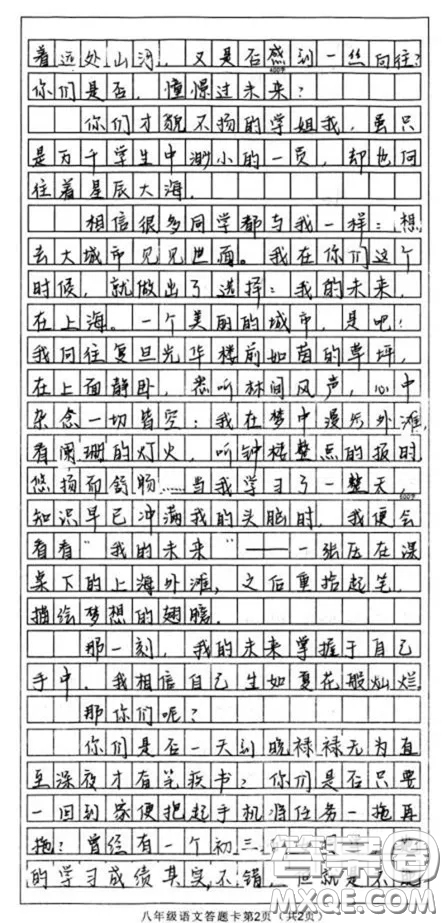 着远处山河，又是否感到一丝向往？
600字
你们是否，憧憬过未来？
你们才貌不扬的学姐我，虽只
是万千学生中渺小的一员，却也向
往着星辰大海。
相信很多同学都与我一样：想
去大城市见见世面。我在你们这个
时候，就做出了选择：我的未来，
在上海。一个美丽的城市，是吧！
我向往复旦光华楼前如茵的草坪，
在上面静卧，忽听林间风声，心中
杂念一切皆空；我在梦中漫步外滩，
看阑珊的灯火，听钟楼整点的报时，
悠扬而舒畅……当我学习了一整天，
知识早已冲满我的头脑时，我便会
看看“我的未来”——一张压在深
桌下的上海外滩，之后重拾起笔，
描绘梦想的翅膀。
那一刻，我的未来掌握于自己
手中，我相信自己生如夏花般灿烂。
那你们呢？
你们是否一天到晚碌碌无为直
至深夜才有笔疾书？你们是否只要
一回到家便把起手机将任务一拖再
拖？曾经有一个初三
的学习成绩其实不错，但就是不
八年级语文答题卡第2页（共2页）
答案圈